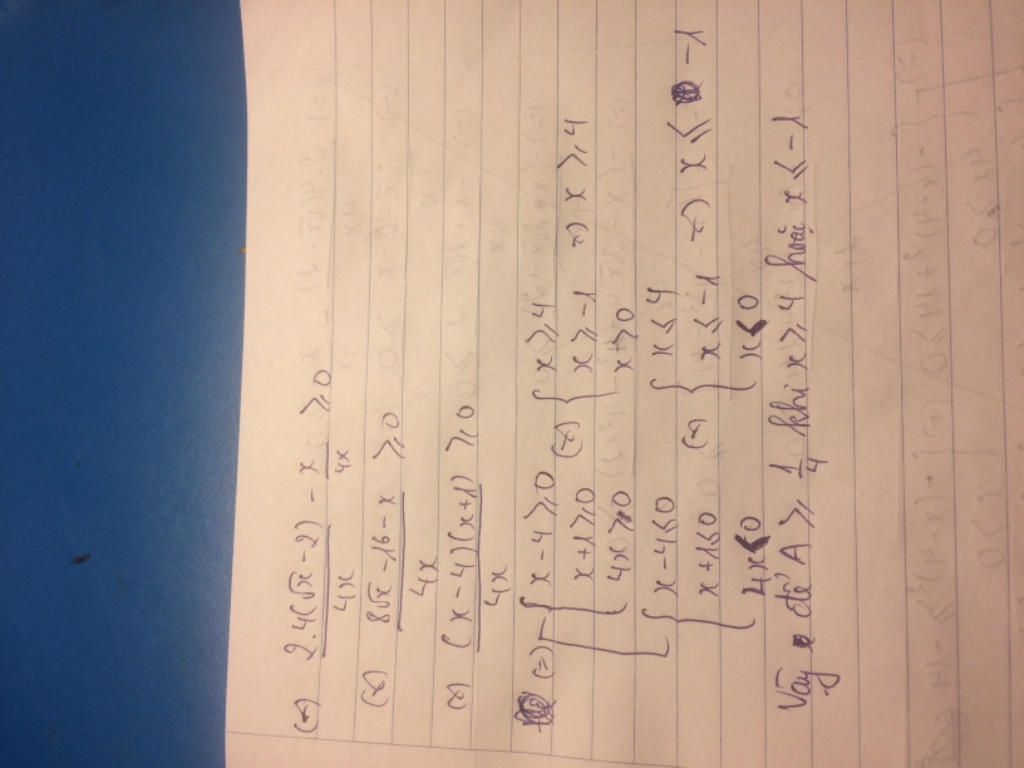 (=) 2.4(√x - 2)/4x - x/4x ≥ 0
(=) 8√x - 16 - x/4x ≥ 0
(=) (x - 4)(x + 1)/4x ≥ 0
(=) [ { x - 4 ≥ 0 { x ≥ 4
x + 1 ≥ 0 (=) x ≥ -1 =) x ≥ 4
4x ≥ 0 x ≥ 0
{ x - 4 ≤ 0 { x ≤ 4
x + 1 ≤ 0 (=) x ≤ -1 =) x ≤ -1
4x ≤ 0 x ≤ 0
Vậy để A ≥ 1/4 khi x ≥ 4 hoặc x ≤ -1